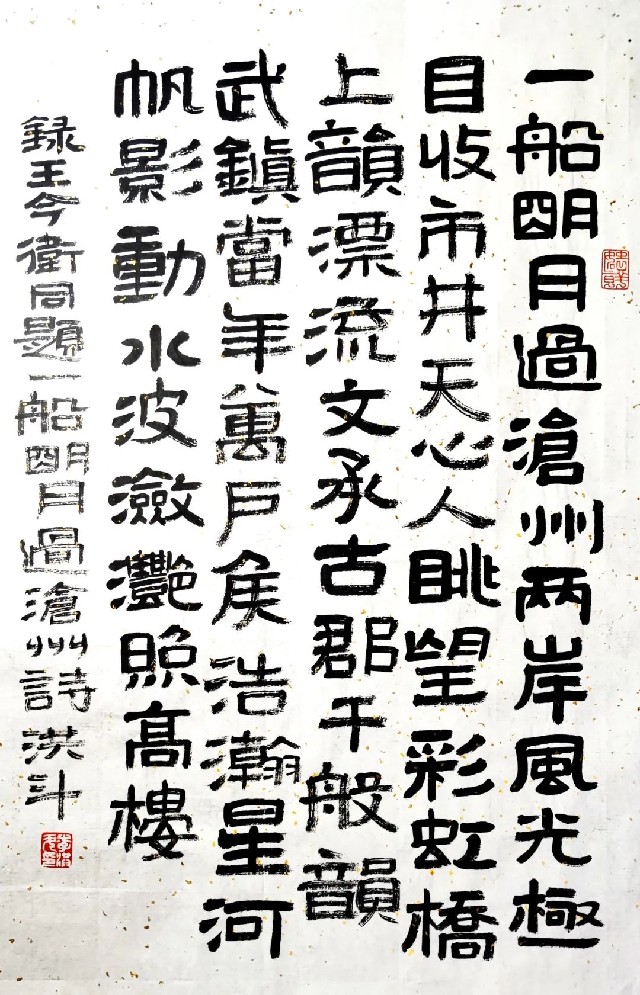 一船明月過滄州两岸風光極
目收市井天心人眺望彩虹橋
上韻漂流文承古郡千般韻
武鎮當年萬戶侯浩瀚星河
帆影動水波瀲灧照高樓
録王今衛同題一船明月過滄州詩洪斗